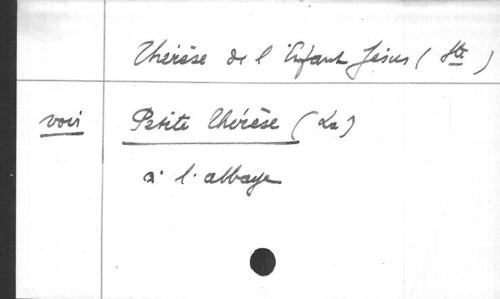 Thérèse de l'Enfant Jésus (Ste)
voir Petite Thérèse (La)
à l'abbaye